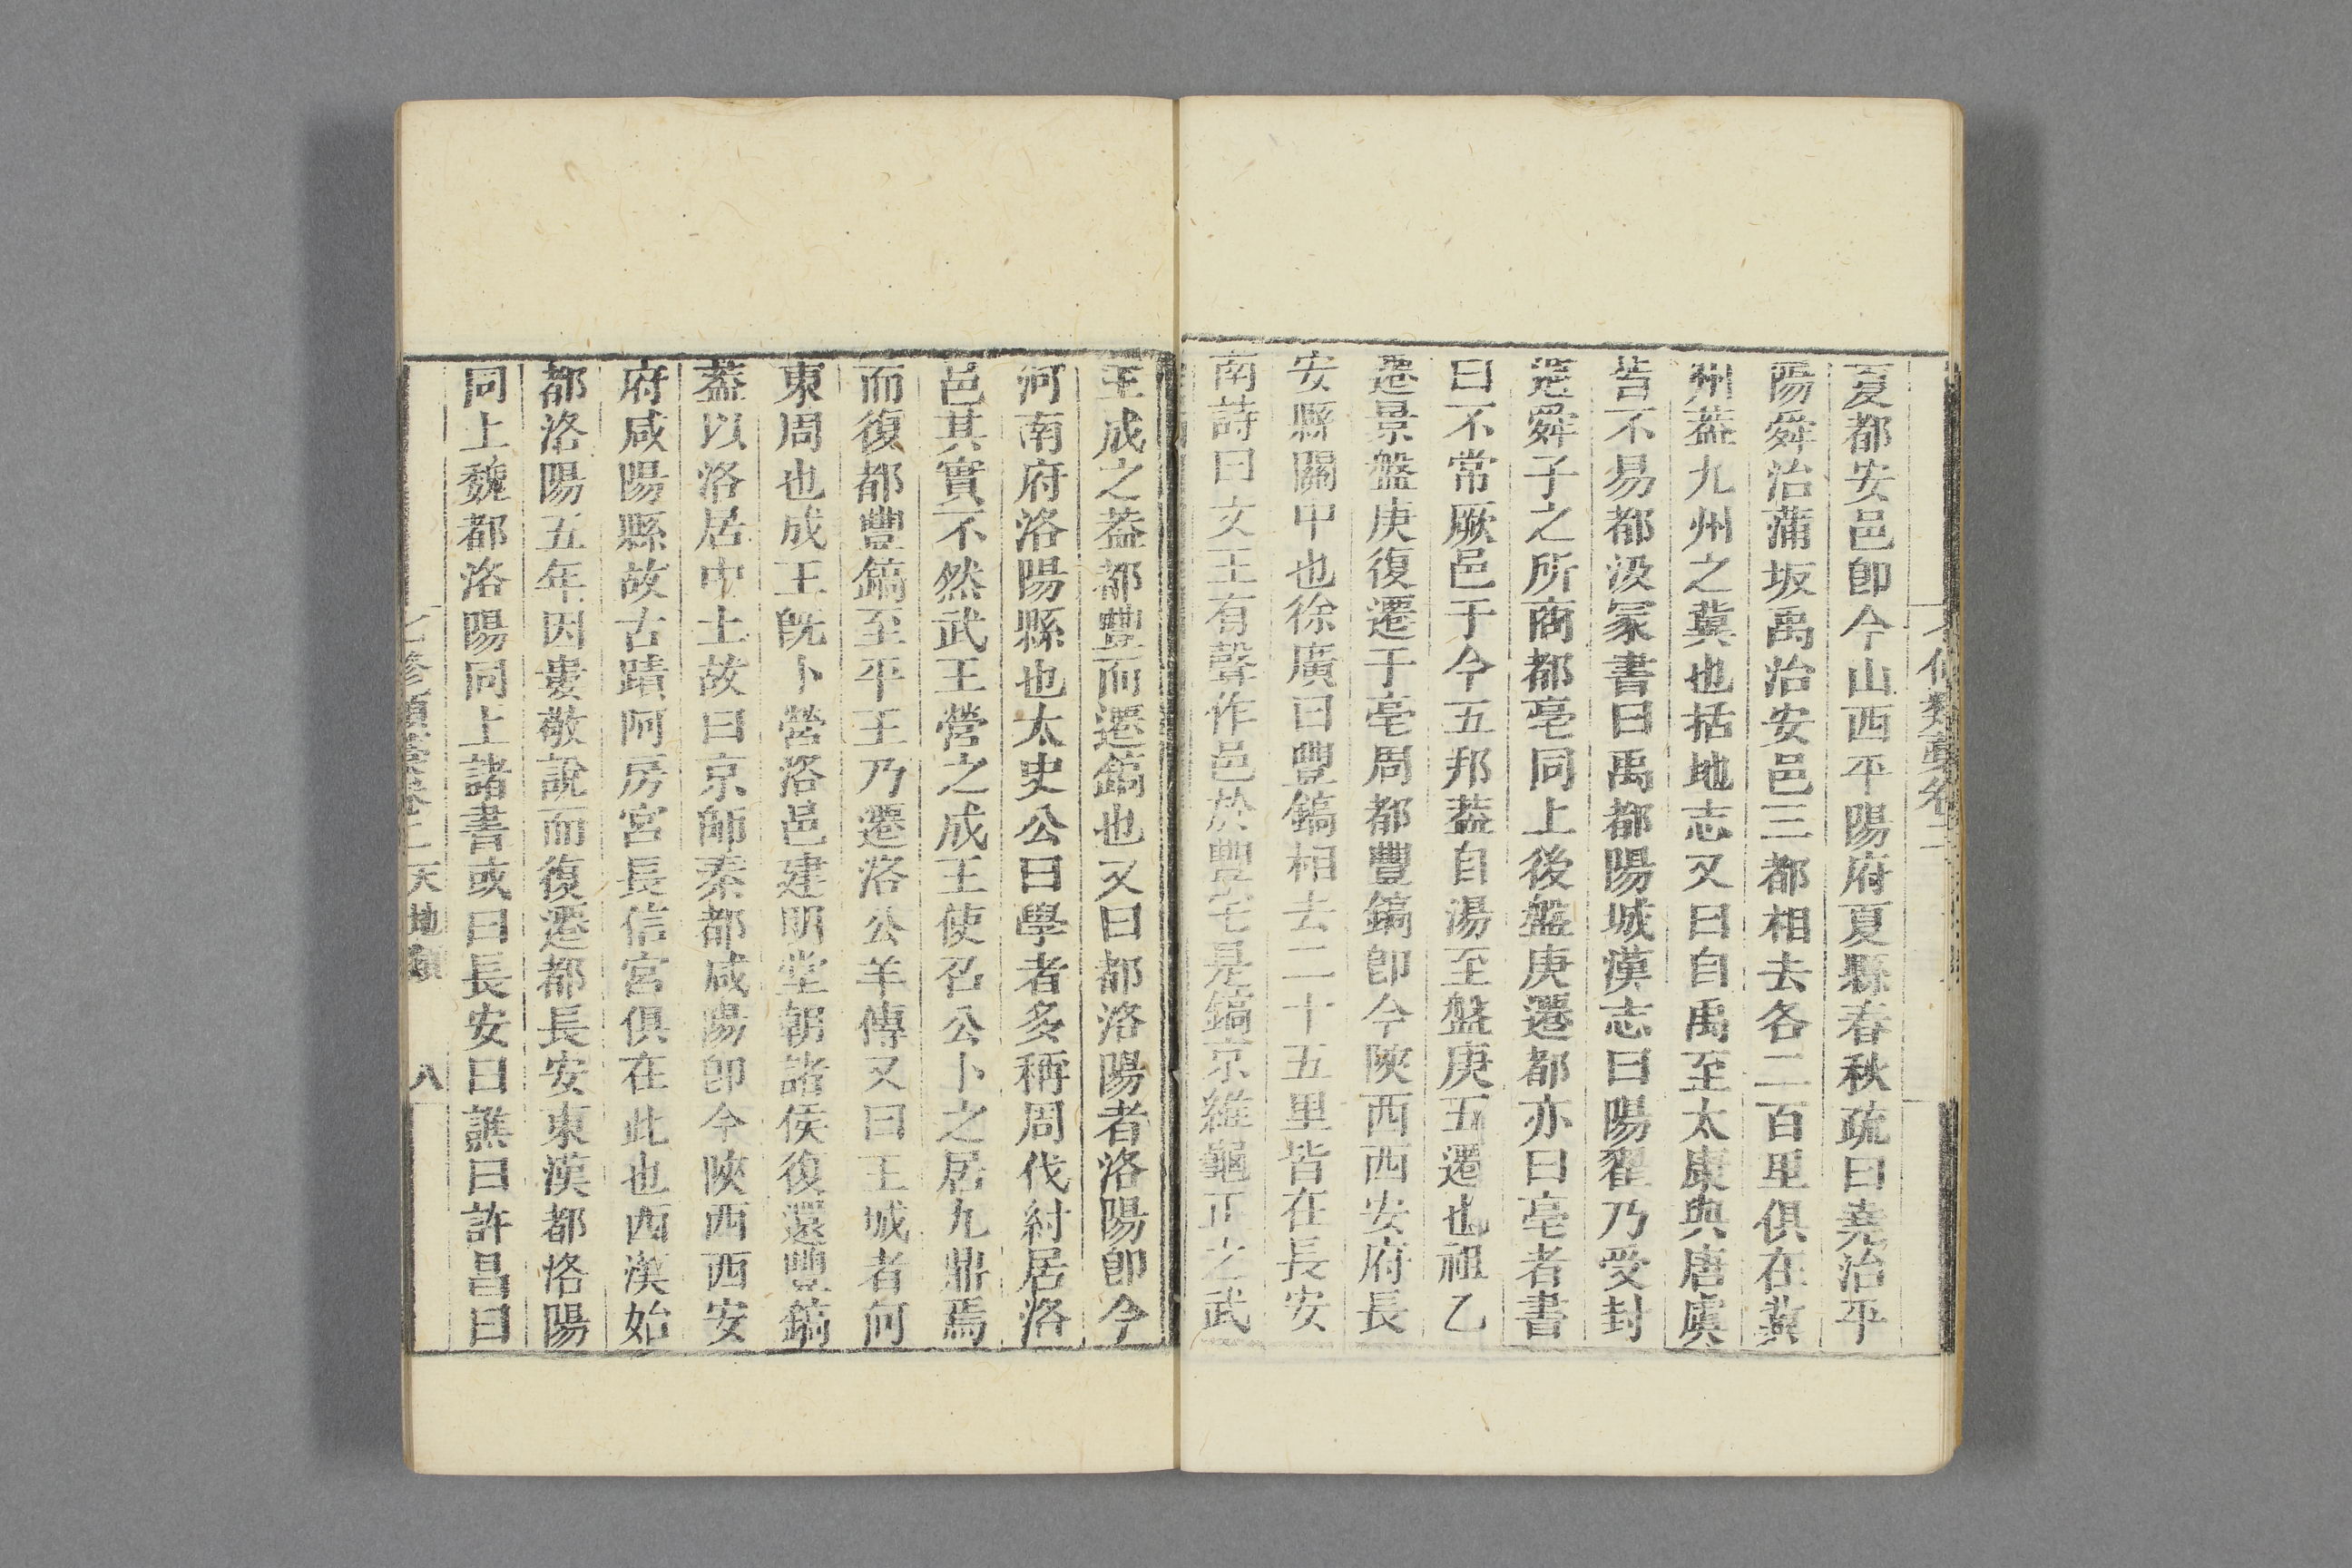 七修類藁卷二
夏都安邑卽今山西平陽府夏縣春秋疏曰堯治平
陽舜治蒲坂禹治安邑三都相去各二百里俱在冀
州葢九州之冀也括地志又曰自禹至太康與唐虞
皆不易都汲冢書曰禹都陽城漢志曰陽翟乃受封
避舜子之所商都亳同上後盤庚遷都亦曰亳者書
曰不常厥邑于今五邦葢自湯至盤庚五遷也祖乙
遷景盤庚復遷于亳周都豐鎬卽今陝西西安府長
安縣關中也徐廣曰豐鎬相去二十五里皆在長安
南詩曰文王有聲作邑於豐宅是鎬京維龜正之武
王成之葢都豐而遷鎬也又曰都洛陽者洛陽卽今
河南府洛陽縣也太史公曰學者多稱周伐紂居洛
邑其實不然武王營之成王使召公卜之居九鼎焉
而復都豐鎬至平王乃遷洛公羊傳又曰王城者何
東周也成王旣卜營洛邑建明堂朝諸侯復還豐鎬
葢以洛居中土故曰京師秦都咸陽卽今陝西西安
府咸陽縣故古蹟阿房宮長信宮俱在此也西漢始
都洛陽五年因婁敬說而復遷都長安東漢都洛陽
同上魏都洛陽同上諸書或曰長安曰譙曰許昌曰
七修類藁卷二天地類 八